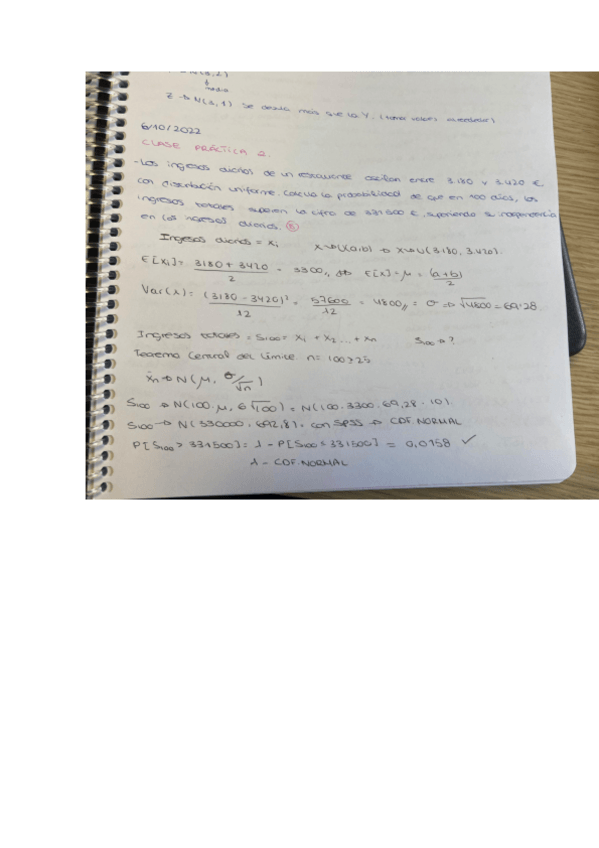 media
Z → N(3,1) se desvía más que la Y. (toma valores alrededor)
6/10/2022
CLASE PRÁCTICA 2.
- Los ingresos diarios de un restaurante oscilan entre 3.180 y 3.420 €
con distribución uniforme. Calcula la probabilidad de que en 100 días, los
ingresos totales superen la cifra de 331500 €, suponiendo su independencia
en los ingresos diarios.
Ingresos diarios = xi x→U(a,b) → x→U(3.180, 3.420).
E[xi] = 3180 + 3420 / 2 = 3300,, → E[x] = μ = (a+b) / 2
Var(x) = (3180 - 3420)² / 12 = 57600 / 12 = 4800,, = σ → √4800 = 69'28
Ingresos totales = S100 = x1 + x2 ... + xn S100 → ?
Teorema Central del Límite. n = 100 > 25
x̄n → N(μ, σ/√n)
S100 → N(100·μ, σ√100) = N(100·3300, 69,28·10).
S100 → N(330000, 692,8). con SPSS → CDF.NORMAL
P[S100 > 331500] = 1 - P[S100 ≤ 331500] = 0,0158 ✓
1 - CDF.NORMAL